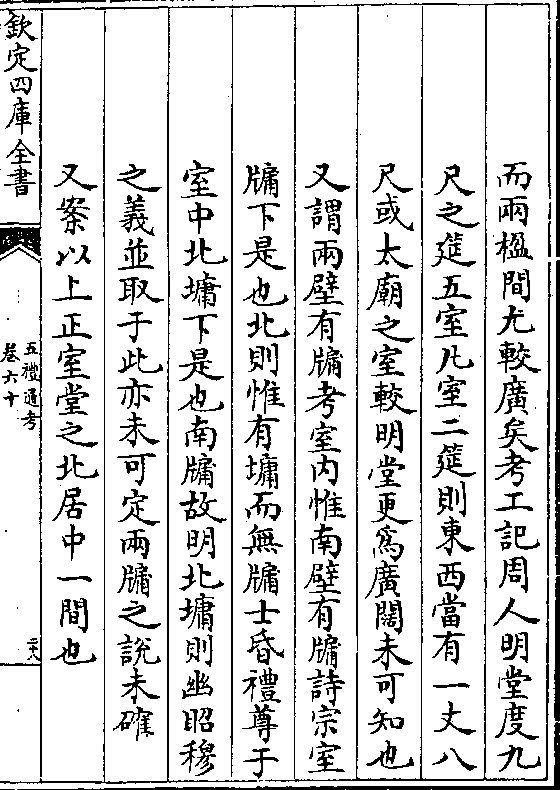 而兩楹間尤較廣矣考工記周人明堂度九
尺之筵五室凡室二筵則東西當有一丈八
尺或太廟之室較明堂更為廣闊未可知也
又謂兩壁有牖考室內惟南壁有牖詩宗室
牖下是也北則惟有墉而無牖士昏禮尊于
室中北墉下是也南牖故明北墉則幽昭穆
之義並取于此亦未可定兩牖之說未確
又案以上正室堂之北居中一間也
欽定四庫全書
五禮通考
卷六十
二十八